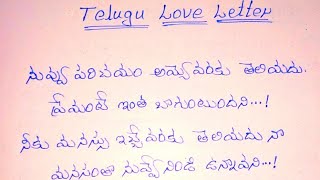 Telugu Love Letter
నువ్వు పరిచయం అయ్యేవరకు తెలియదు.
ప్రేమంటే ఇంత బాగుంటుందని...!
నీకు మనస్సు ఇచ్చేవరకు తెలియదు నా
మనసంతా నువ్వే నిండి ఉన్నావని...!